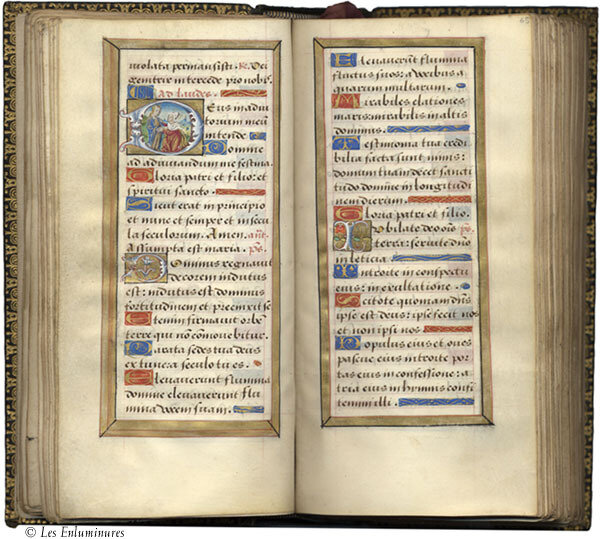 violata permansisti. R. Dei
genitrix intercede pro nobis.
Ad laudes.
Deus in adiu
torium meũ
intende
Domine
ad adiuvandum me festina
Gloria patri et filio: et
spiritui sancto.
Sicut erat in principio
et nunc et semper et in secu
la seculorum. Amen. añt.
Assumpta est maria. ps.
Dominus regnavit
decorem indutus
est: indutus est dominus
fortitudinem et precinxit se
Etenim firmavit orbẽ
terre qui nõ cõmovebitur.
Parata sedes tua deus
ex tunc a seculo tu es.
Elevaverunt flumina
domine elevaverunt flu
mina vocem suam.
65
Elevaverunt flumina
fluctus suos: a vocibus a
quarum multarum.
Mirabiles elationes
maris: mirabilis in altis
dominus.
Testimonia tua credi
bilia facta sunt nimis:
domum tuam decet sanctitu
do domine in longitudi
nem dierum.
Gloria patri et filio.
Iubilate deo oĩs ps.
terra: servite dño
in leticia
Introite in conspectu
eius: in exultatione.
Scitote quoniam dñs
ipse est deus: ipse fecit nos
et non ipsi nos
Populus eius et oves
pascue eius introite por
tas eius in confessione: a
tria eius in hymnis confi
temini illi.
© Les Enluminures